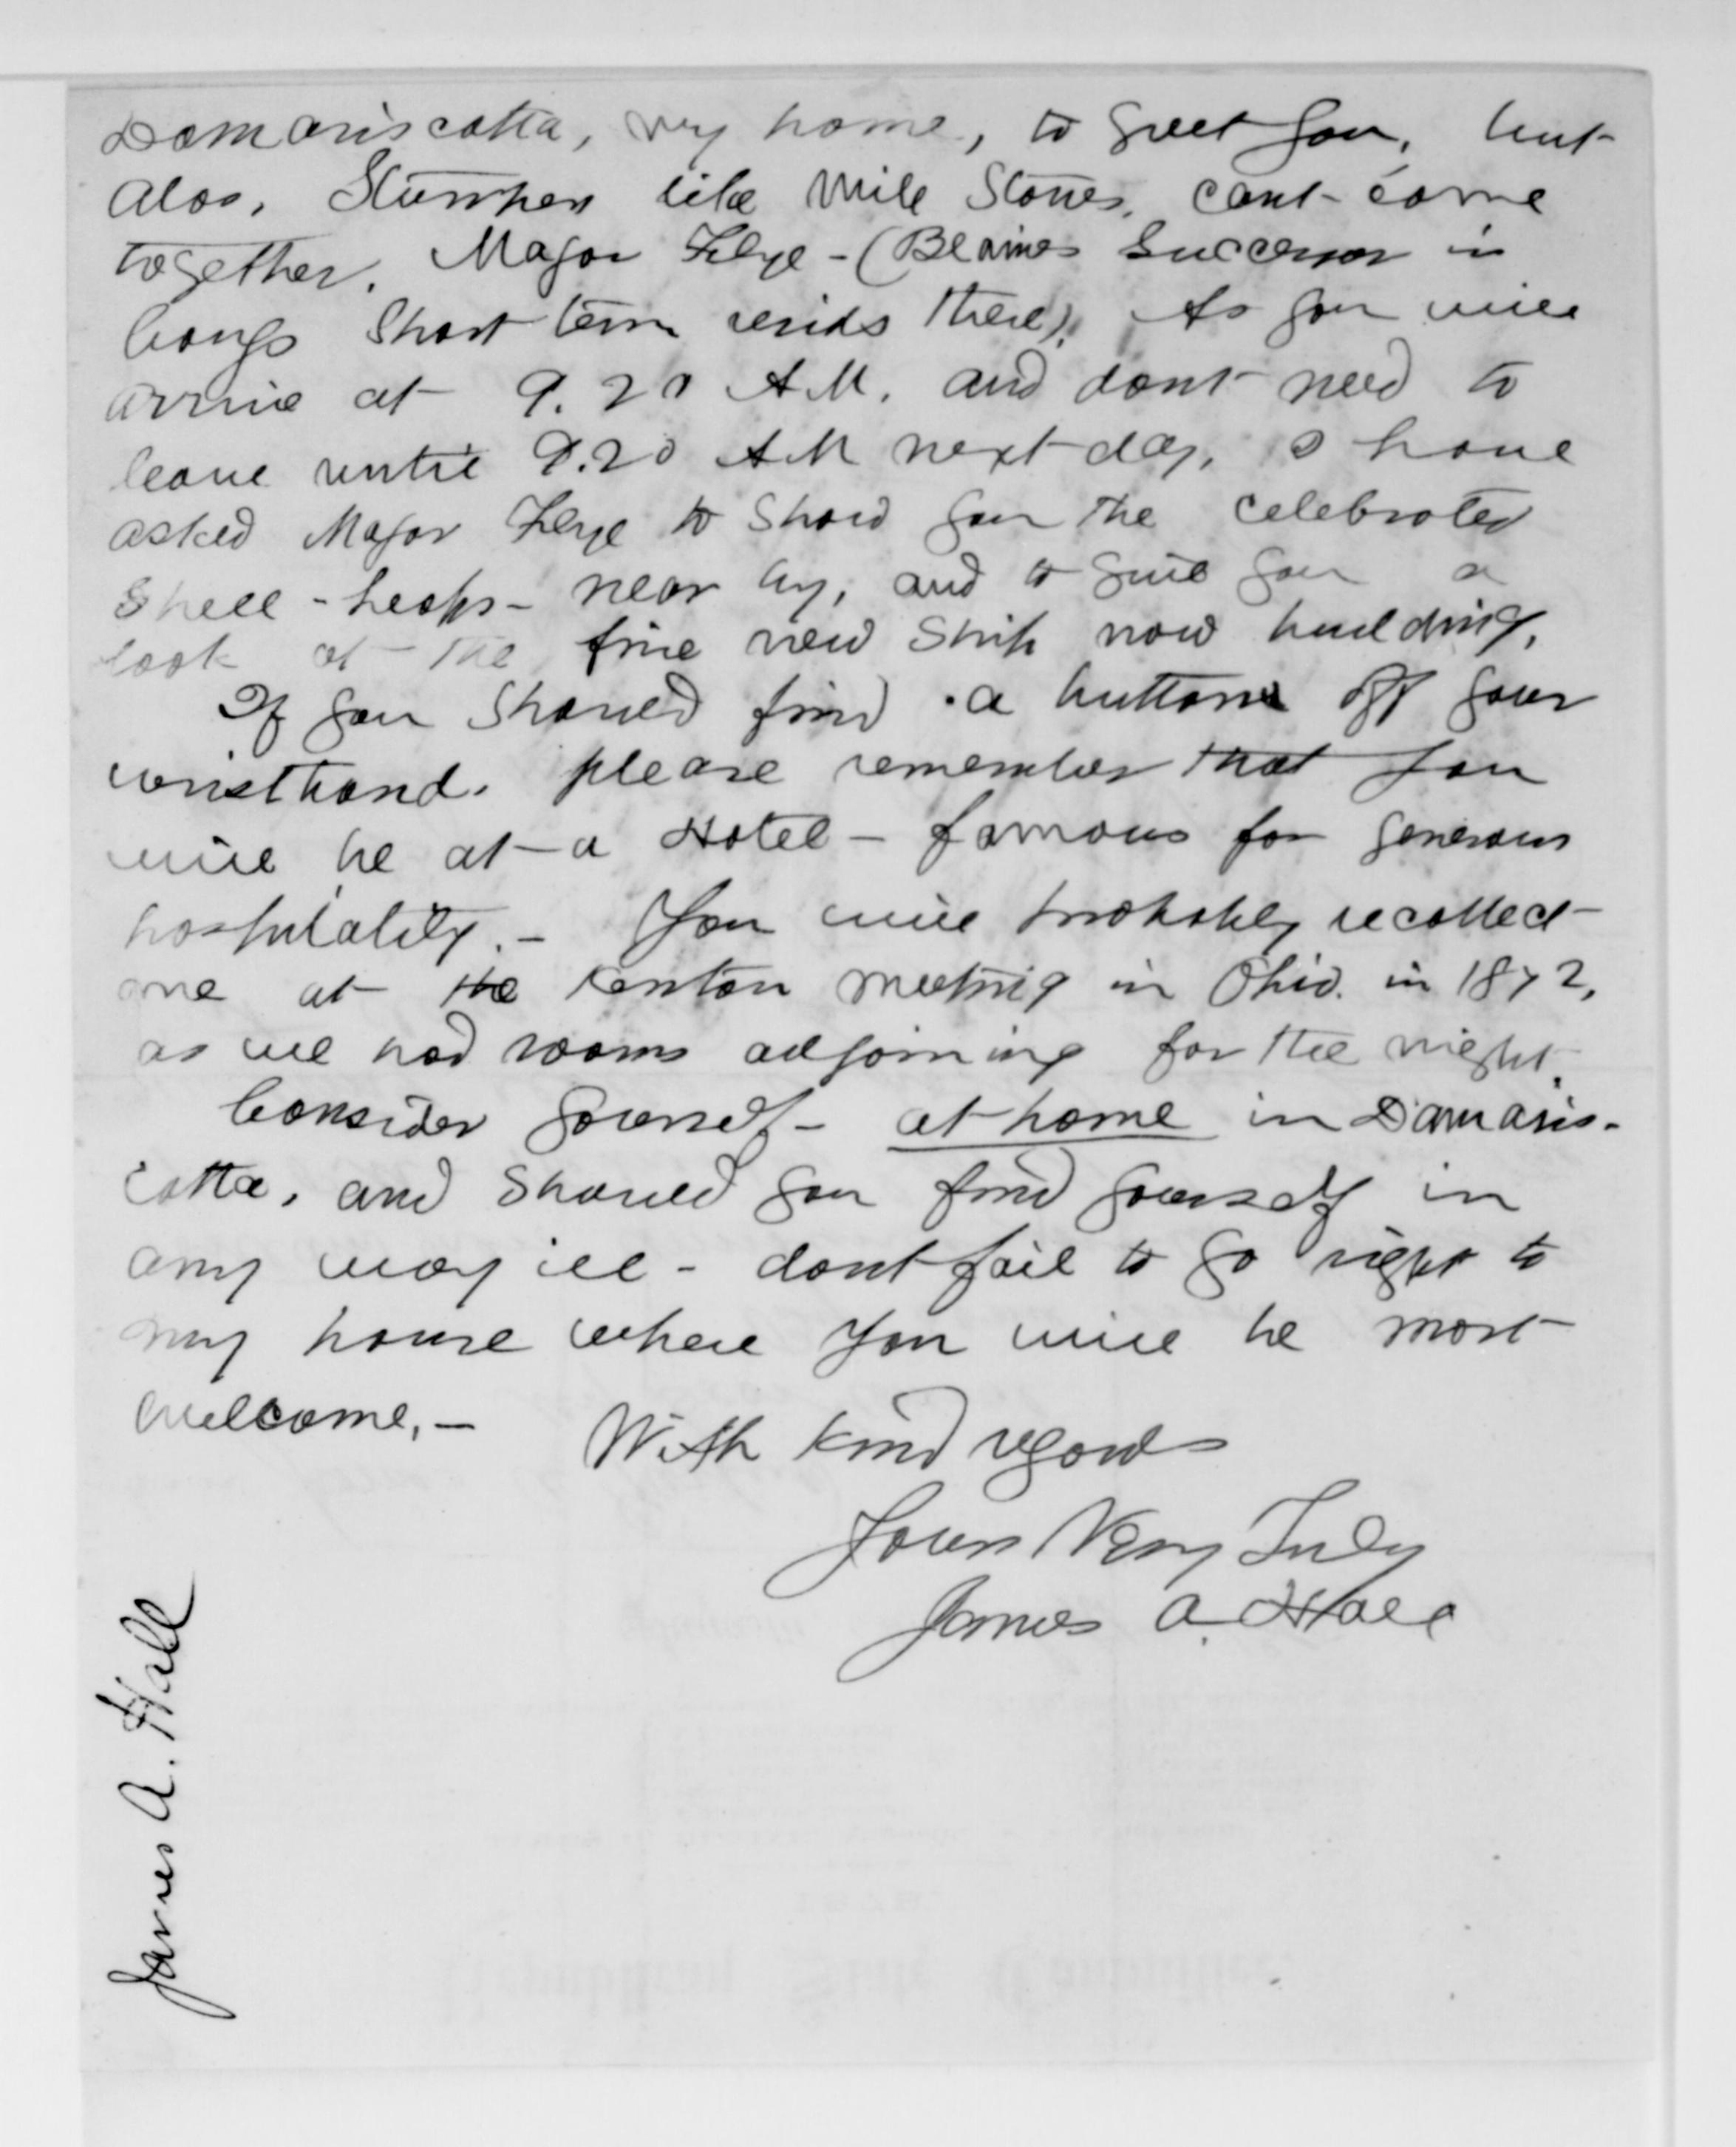 Damariscotta, my home, to greet you, but
alas, Stumpers like Mile Stones, cant come
together. Major Flye - (Blaines Successor in
Congs Short term resids there). As you will
arrive at 9.20 A.M. and dont need to
leave until 9.20 A.M next day, I have
asked Major Flye to Show you the celebrated
Shell-heaps- near by, and to give you a
look at the fine new Ship now building.
If you Should find a button off your
wristband, please remember that you
will be at a Hotel - famous for generous
hospitality. - You will probably recollect
one at the Kenton meeting in Ohio. in 1872,
as we had rooms adjoining for the night.
Consider yourself - at home in Damaris-
cotta, and Should you find yourself in
any way ill - dont fail to go right to
my house where you will be most
welcome, -
With kind regards
Yours Very Truly
James A. Hall
James A. Hall